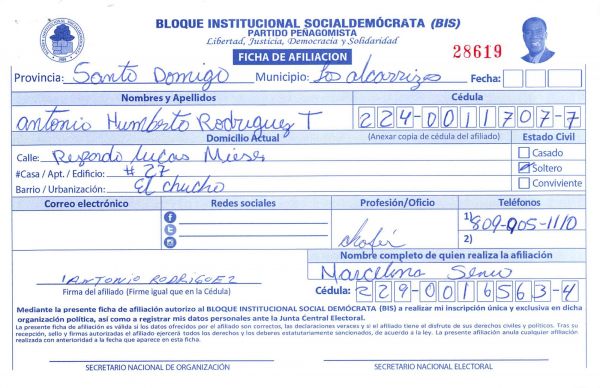 BLOQUE INSTITUCIONAL SOCIALDEMÓCRATA (BIS)
PARTIDO PEÑAGOMISTA
Libertad, Justicia, Democracia y Solidaridad
FICHA DE AFILIACION
28619
Provincia: Santo Domigo Municipio: Los alcarrizos Fecha:
Nombres y Apellidos Cédula
Antonio Humberto Rodriguez T 224-0011707-7
Domicilio Actual (Anexar copia de cédula del afiliado) Estado Civil
Calle: Lucas Casado
#Casa / Apt. / Edificio: # 27 Soltero
Barrio / Urbanización: El chucho Conviviente
Correo electrónico Redes sociales Profesión/Oficio Teléfonos
1) 809-905-1110
chofer 2)
Nombre completo de quien realiza la afiliación
ANTONIO RODRIGUEZ Marcelino
Firma del afiliado (Firme igual que en la Cédula) Cédula: 229-0016563-4
Mediante la presente ficha de afiliación autorizo al BLOQUE INSTITUCIONAL SOCIAL DEMÓCRATA (BIS) a realizar mi inscripción única y exclusiva en dicha
organización política, así como a registrar mis datos personales ante la Junta Central Electoral.
La presente ficha de afiliación es válida si los datos ofrecidos por el afiliado son correctos, las declaraciones veraces y si el afiliado tiene el disfrute de sus derechos civiles y políticos. Tras su
recepción, sello y firmas autorizadas el afiliado ejercerá todos los derechos y los deberes estatutariamente sancionados, de acuerdo a la ley. La presente afiliación anula cualquier afiliación
realizada con anterioridad a la fecha que aparece en esta ficha.
SECRETARIO NACIONAL DE ORGANIZACIÓN SECRETARIO NACIONAL ELECTORAL